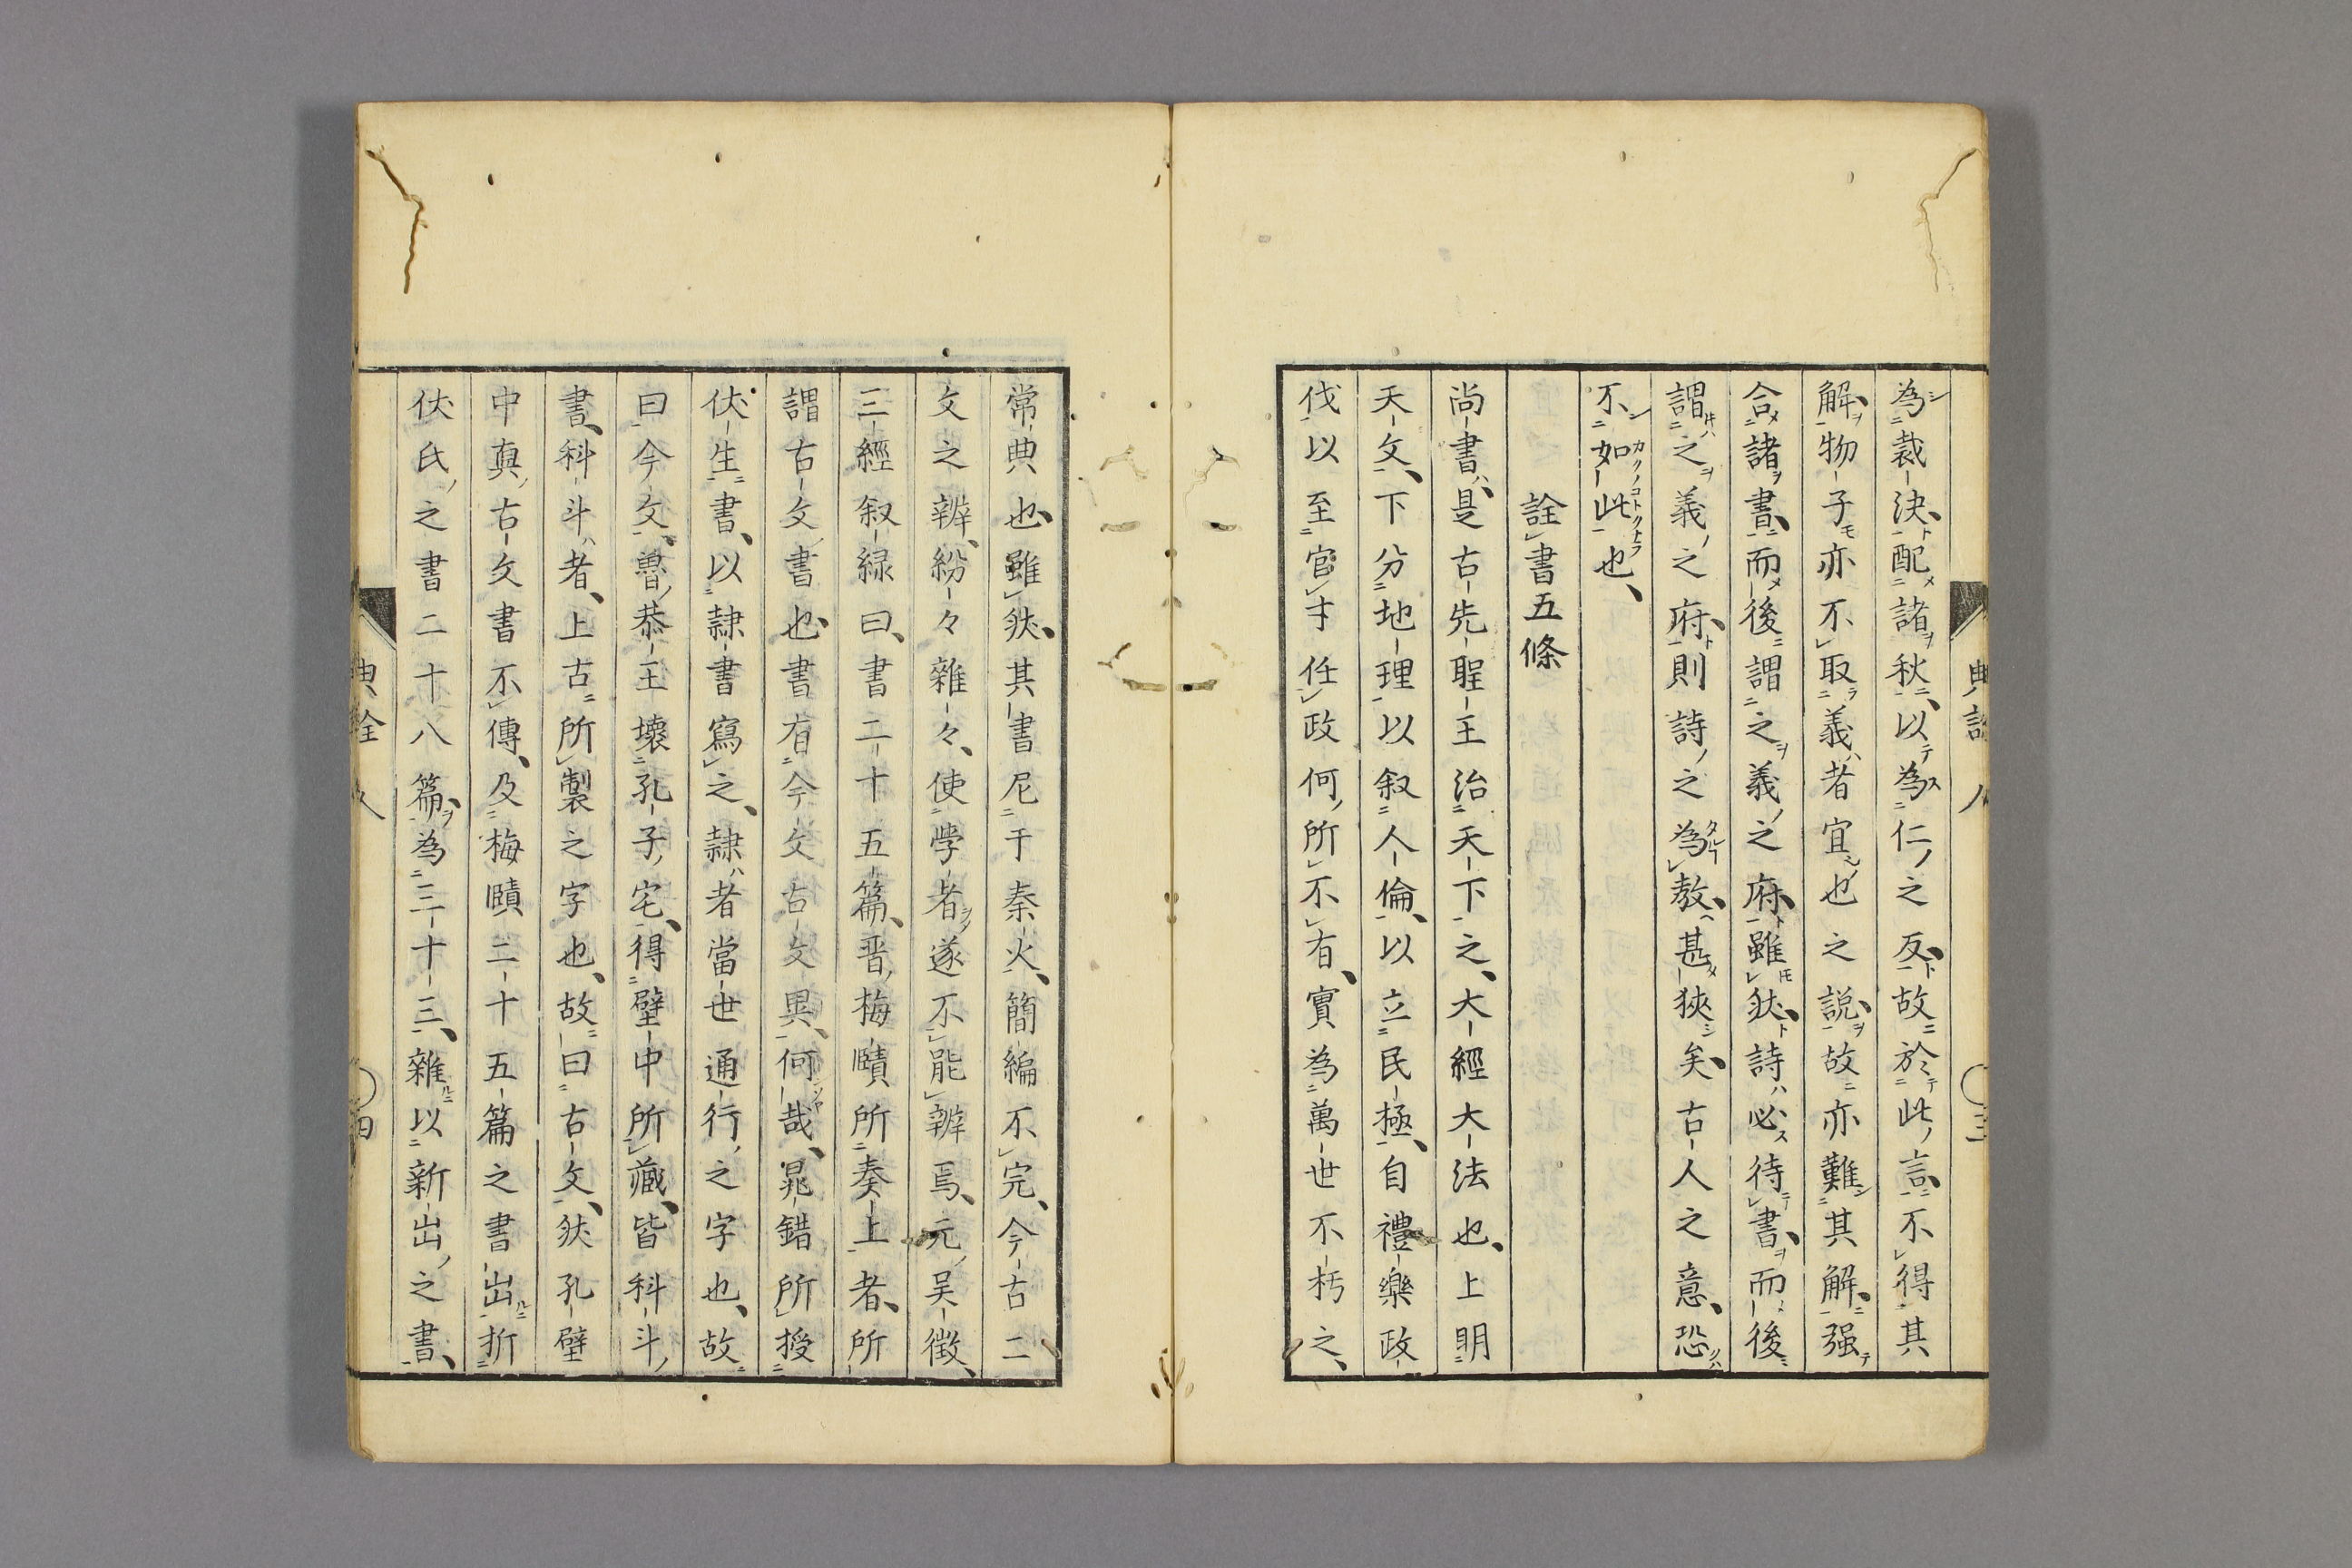 為裁決配諸秋以為仁之反故於此言不得其
解物子亦不取義者宜也之説故亦難其解强
合諸書而後謂之義之府雖肰詩必待書而後
謂之義之府則詩之為教甚狹矣古人之意恐
不如此也
詮書五條
尚書是古先聖王治天下之大經大法也上明
天文下分地理以叙人倫以立民極自禮樂政
伐以至官才任政何所不有實為萬世不朽之
常典也雖肰其書尼于秦火簡編不完今古二
文之辨紛々雜々使學者遂不能辨焉元吴徵
三經叙録曰書二十五篇晋梅賾所奏上者所
謂古文書也書有今文古文異何哉晁錯所授
伏生書以隷書寫之隷者當世通行之字也故
曰今文魯恭王壞孔子宅得壁中所藏皆科斗
書科斗者上古所製之字也故曰古文肰孔壁
中真古文書不傳及梅賾二十五篇之書出折
伏氏之書二十八篇為三十三雜以新出之書